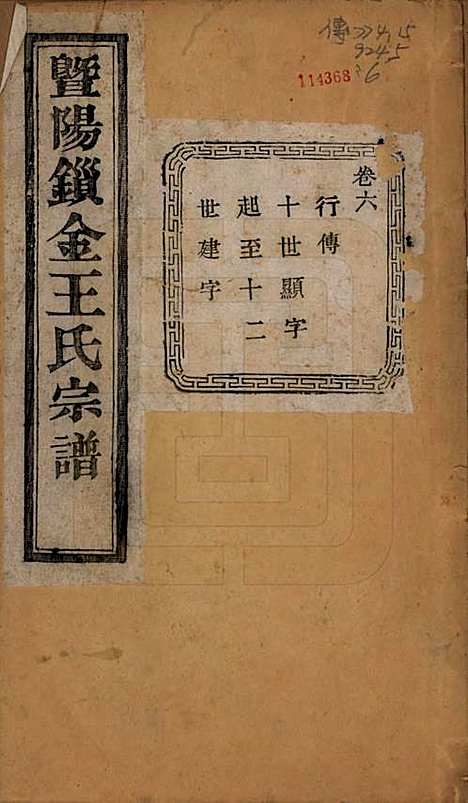 暨陽鎻金王氏宗譜
卷六
行傳
十世顯字
起至十二
世建字
傳
114368
6